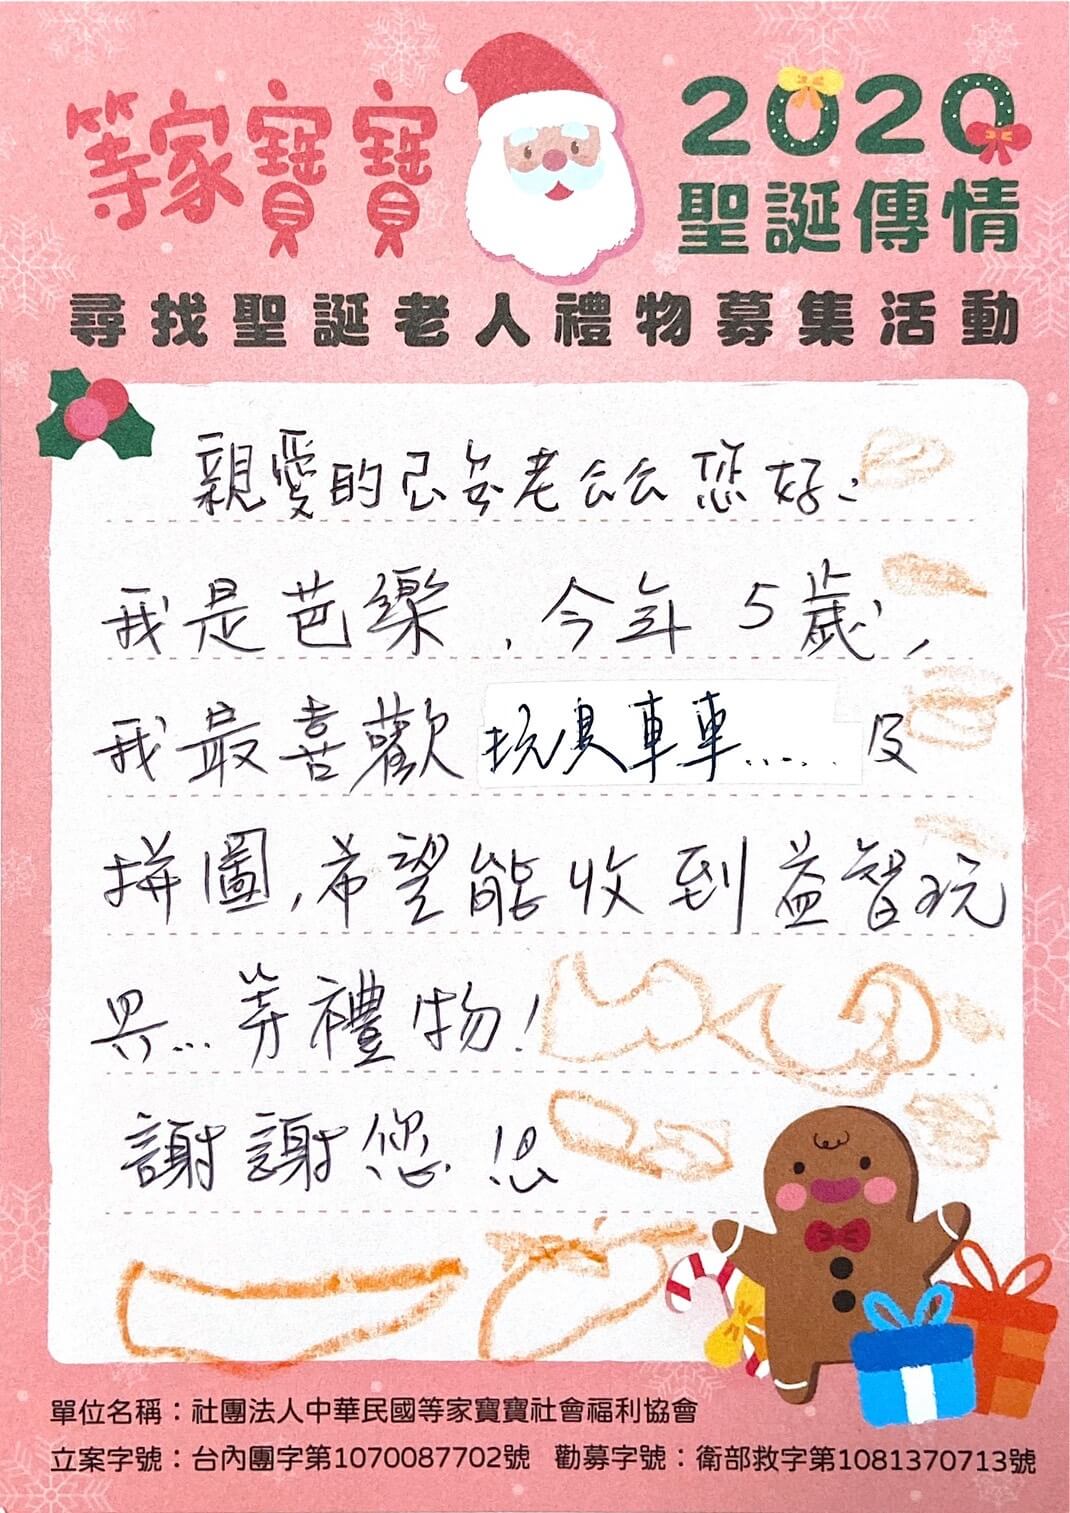 等家寶寶
2020
聖誕傳情
尋找聖誕老人禮物募集活動
親愛的已安老公公您好:
我是芭樂,今年5歲,
我最喜歡玩具車車.....及
拼圖,希望能收到益智玩
具...等禮物!
謝謝您!
單位名稱:社團法人中華民國等家寶寶社會福利協會
立案字號:台內團字第1070087702號 勸募字號:衛部救字第1081370713號